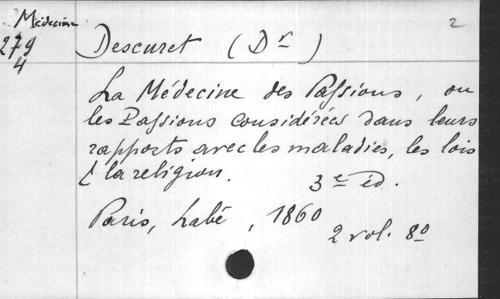 Médecine
2
279
4
Descuret (Dr)
La Médecine des Passions, ou
les Passions considérées dans leurs
rapports avec les maladies, les lois
& la religion.
3e éd.
Paris, Labé, 1860
2 vol. 8o